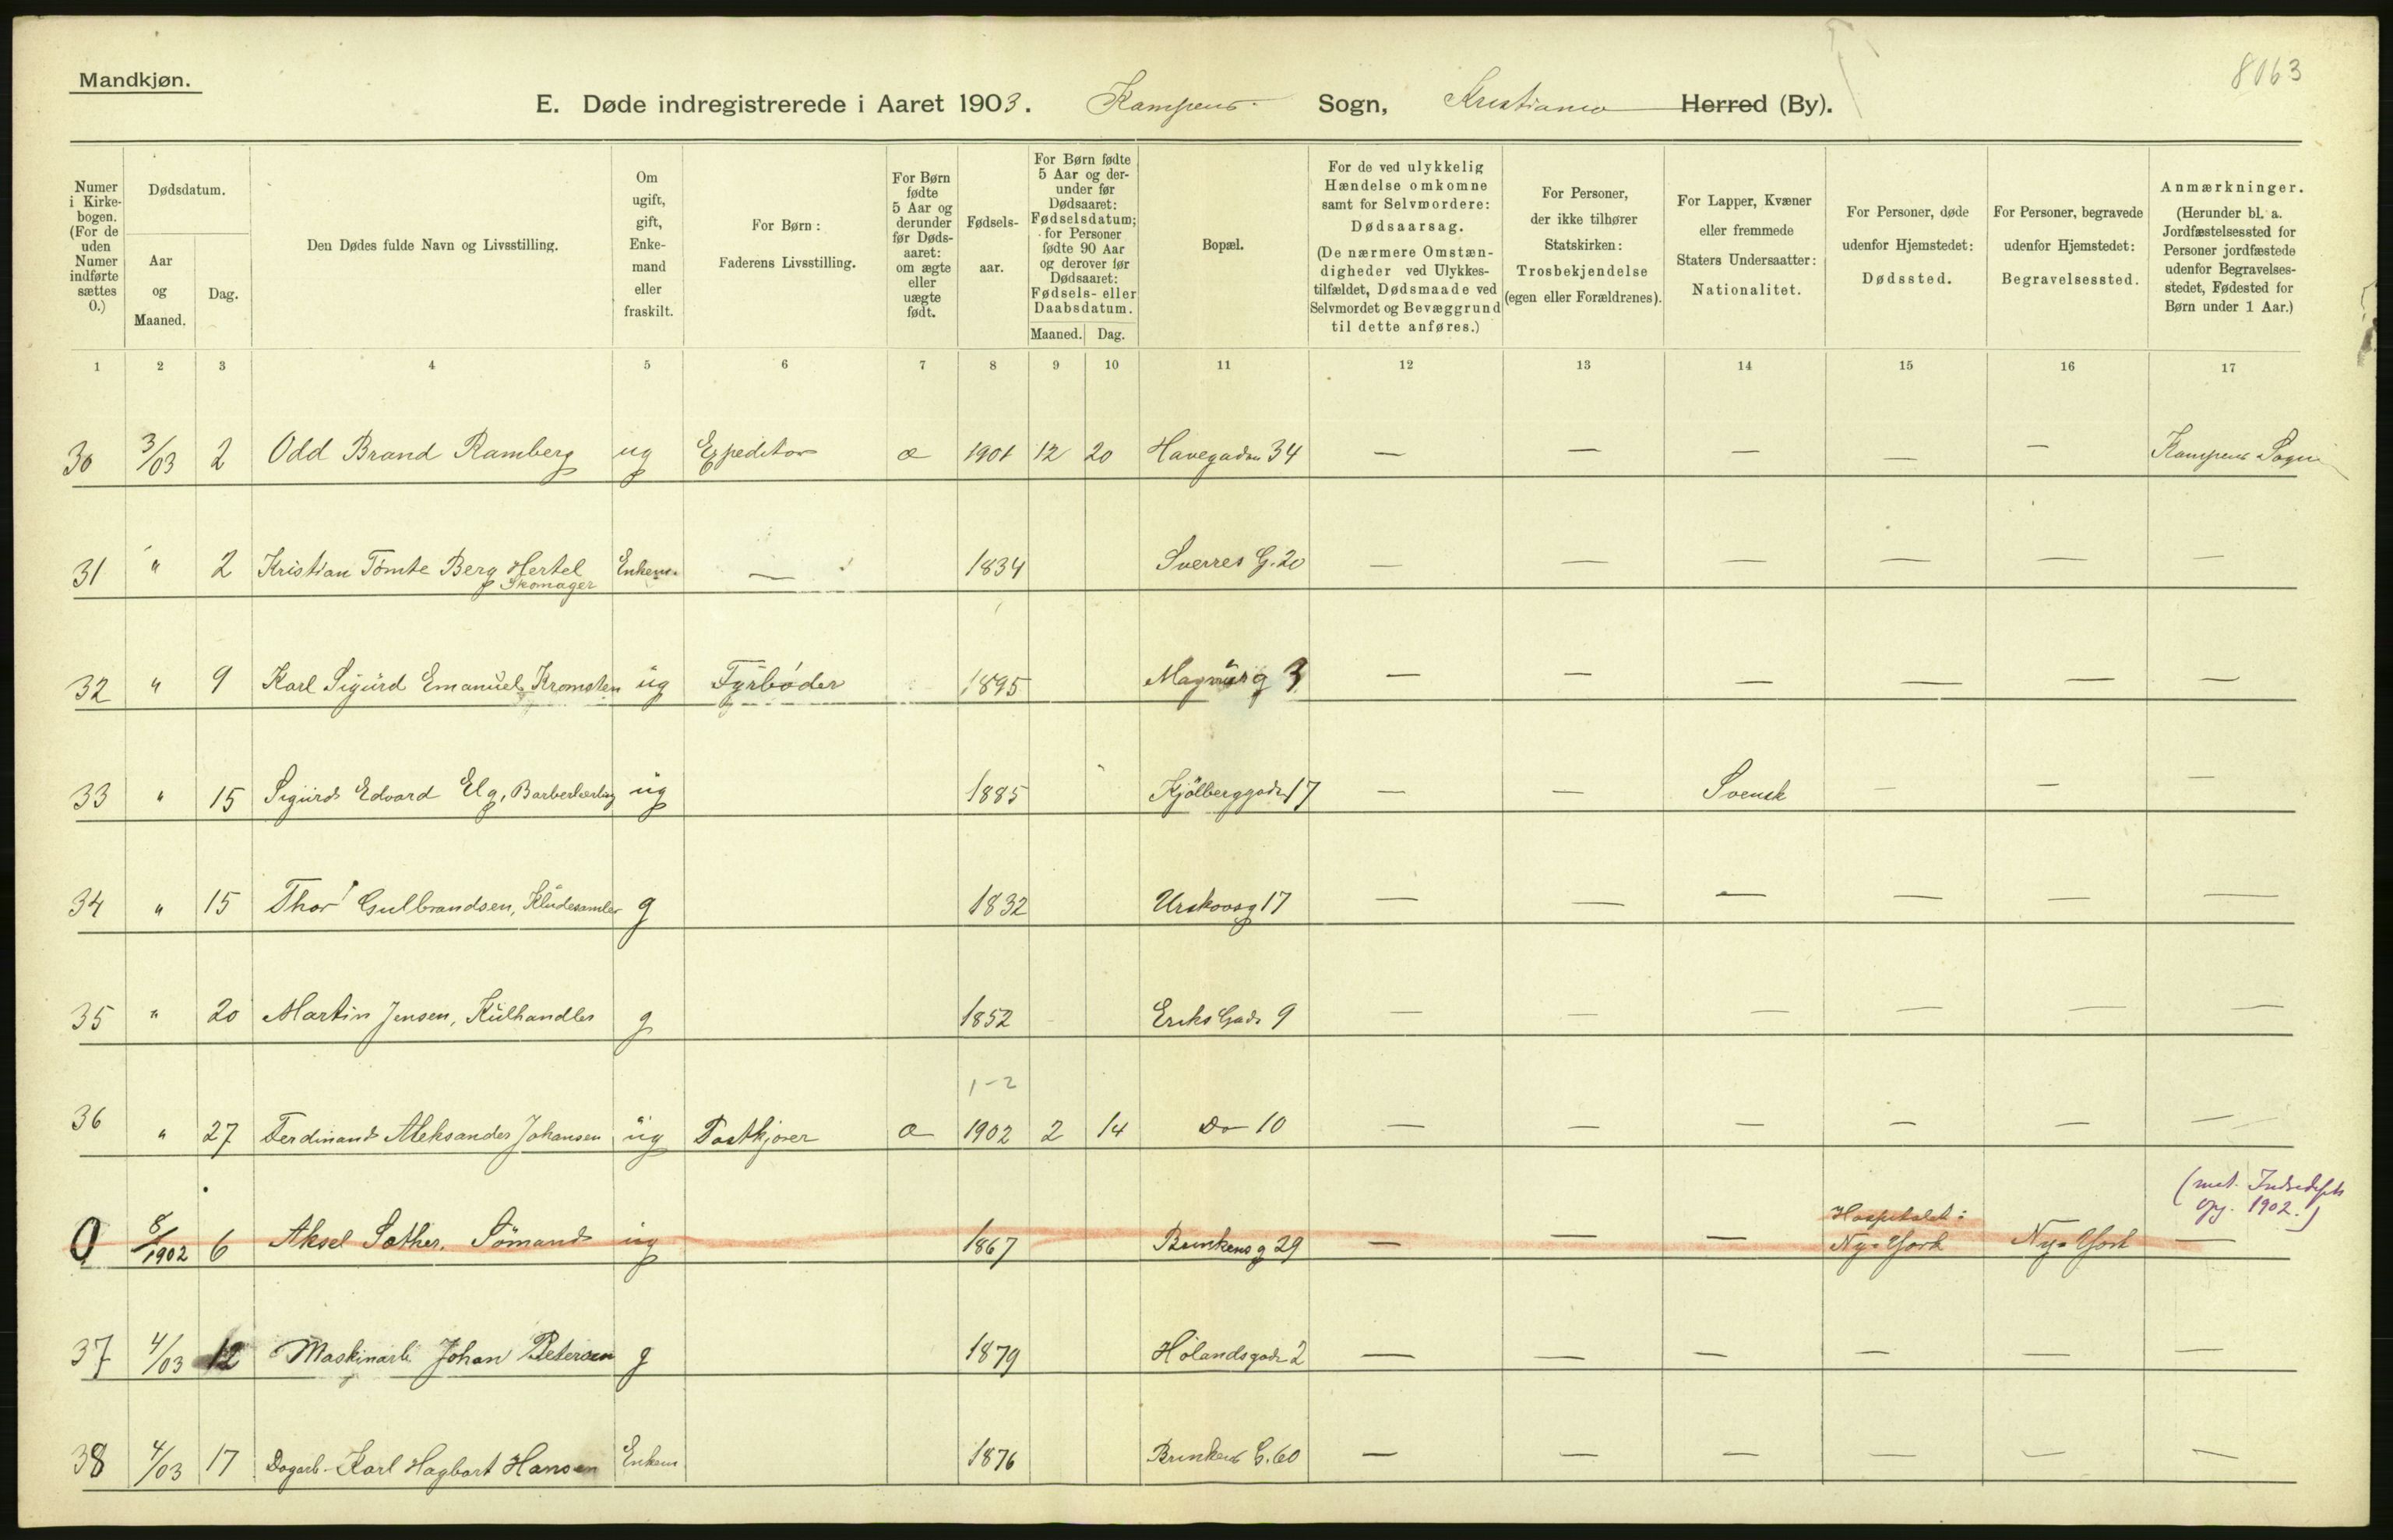 Mandkjøn.
8063
E. Døde indregistrerede i Aaret 1903. Kampens Sogn, Kristiania Herred (By).
Numer i Kirkebogen. (For de uden Numer indførte sættes 0.)
Dødsdatum.
Aar og Maaned.
Dag.
Den Dødes fulde Navn og Livsstilling.
Om ugift, gift, Enkemand eller fraskilt.
For Børn: Faderens Livsstilling.
For Børn fødte 5 Aar og derunder før Dødsaaret: om ægte eller uægte født.
Fødselsaar.
For Børn fødte 5 Aar og derunder før Dødsaaret: Fødselsdatum; for Personer fødte 90 Aar og derover før Dødsaaret: Fødsels- eller Daabsdatum.
Maaned. Dag.
Bopæl.
For de ved ulykkelig Hændelse omkomne samt for Selvmordere: Dødsaarsag. (De nærmere Omstændigheder ved Ulykkestilfældet, Dødsmaade ved Selvmordet og Bevæggrund til dette anføres.)
For Personer, der ikke tilhører Statskirken: Trosbekjendelse (egen eller Forældrenes).
For Lapper, Kvæner eller fremmede Staters Undersaatter: Nationalitet.
For Personer, døde udenfor Hjemstedet: Dødssted.
For Personer, begravede udenfor Hjemstedet: Begravelsessted.
Anmærkninger. (Herunder bl. a. Jordfæstelsessted for Personer jordfæstede udenfor Begravelsesstedet, Fødested for Børn under 1 Aar.)
1 2 3 4 5 6 7 8 9 10 11 12 13 14 15 16 17
30 3/03 2 Odd Brand Ramberg ug Expeditør æ 1901 12 20 Havegaden 34 — — — — — Kampens Sogn
31 " 2 Kristian Tömte Berg Hertel Enkem. — 1834 Sverres G. 20 — — — — — —
Skomager
32 " 9 Karl Sigurd Emanuel Kromsten ug Fyrbøder 1895 Magnus g 3 — — — — — —
33 " 15 Sigurd Edvard Elg, Barberlærling ug 1885 Kjölberggade 17 — — Svensk — — —
34 " 15 Thor Gulbrandsen, Kludesamler g 1832 Urskovsg 17 — — — — — —
35 " 20 Martin Jensen, Kulhandler g 1852 Eriks Gade 9 — — — — — —
1-2
36 " 27 Ferdinand Aleksander Johansen ug Postkjører æ 1902 2 14 Do 10 — — — — — —
0 8/1902 6 Aksel Sæther. Sömand ug 1867 Brinkens g 29 — — — Hospitalet i Ny-York Ny-York —
opg. 1902.)
37 4/03 12 Maskinarb Johan Petersen g 1879 Hölandsgade 2 — — — — — —
38 4/03 17 Dagarb. Karl Hagbart Hansen Enkem 1876 Brinkens G. 60 — — — — — —